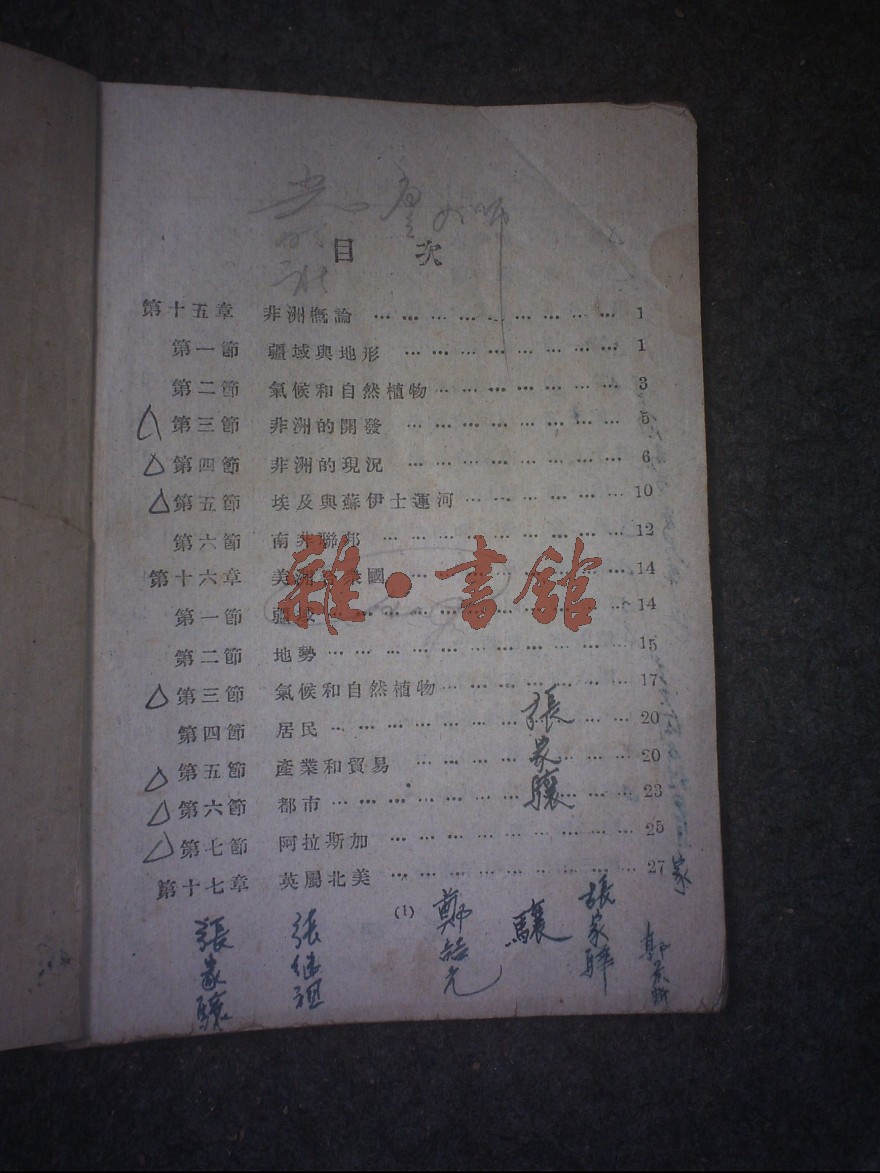 目 次
第十五章 非洲概論 … … … … … … … … … 1
第一節 疆域與地形 … … … … … … … … 1
第二節 氣候和自然植物 … … … … … … … 3
第三節 非洲的開發 … … … … … … … … 5
第四節 非洲的現況 … … … … … … … … 6
第五節 埃及與蘇伊士運河 … … … … … … 10
第六節 南非聯邦 … … … … … … … … … 12
第十六章 美洲合眾國 … … … … … … … … 14
第一節 疆域 … … … … … … … … … … 14
第二節 地勢 … … … … … … … … … … 15
第三節 氣候和自然植物 … … … … … … … 17
第四節 居民 … … … … … … … … … … 20
第五節 產業和貿易 … … … … … … … … 20
第六節 都市 … … … … … … … … … … 23
第七節 阿拉斯加 … … … … … … … … … 25
第十七章 英屬北美 … … … … … … … … … 27
(1)
雜·書館
張家驤
家
張家驤
張繼祖
鄭
驤
張家驊